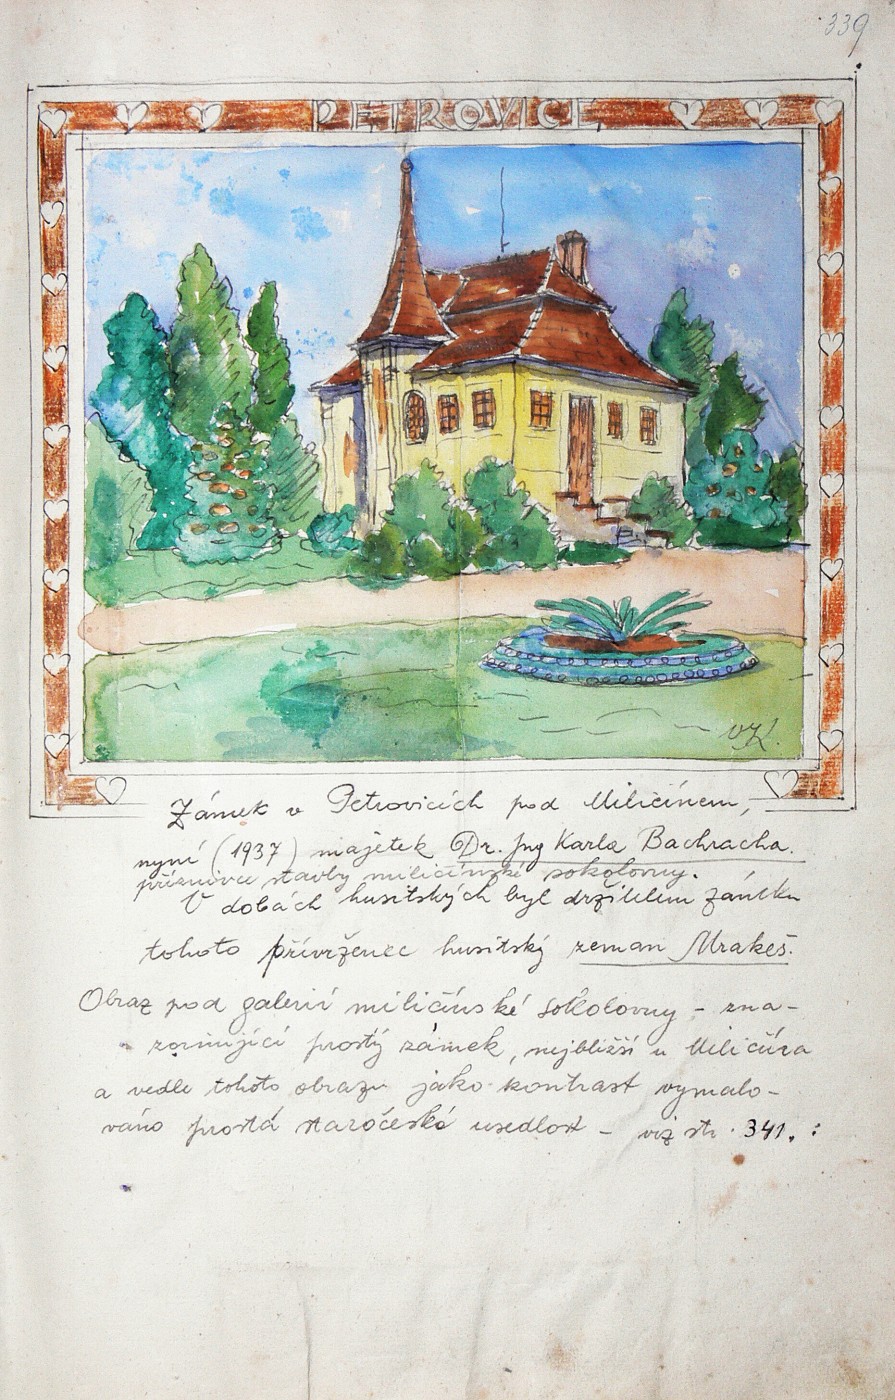 339
PETROVICE
VK
Zámek v Petrovicích pod Miličínem,
nyní (1937) majetek Dr. Jng Karla Bachracha.
příznivce stavby miličínské sokolovny.
V dobách husitských byl držitelem zámku
tohoto přívrženec husitský zeman Mrakeš.
Obraz pod galerií miličínské sokolovny – zna-
zorňující prostý zámek, nejbližší u Miličína
a vedle tohoto obrazu jako kontrast vymalo-
váno prostá staročeská usedlost – viz str. 341. :